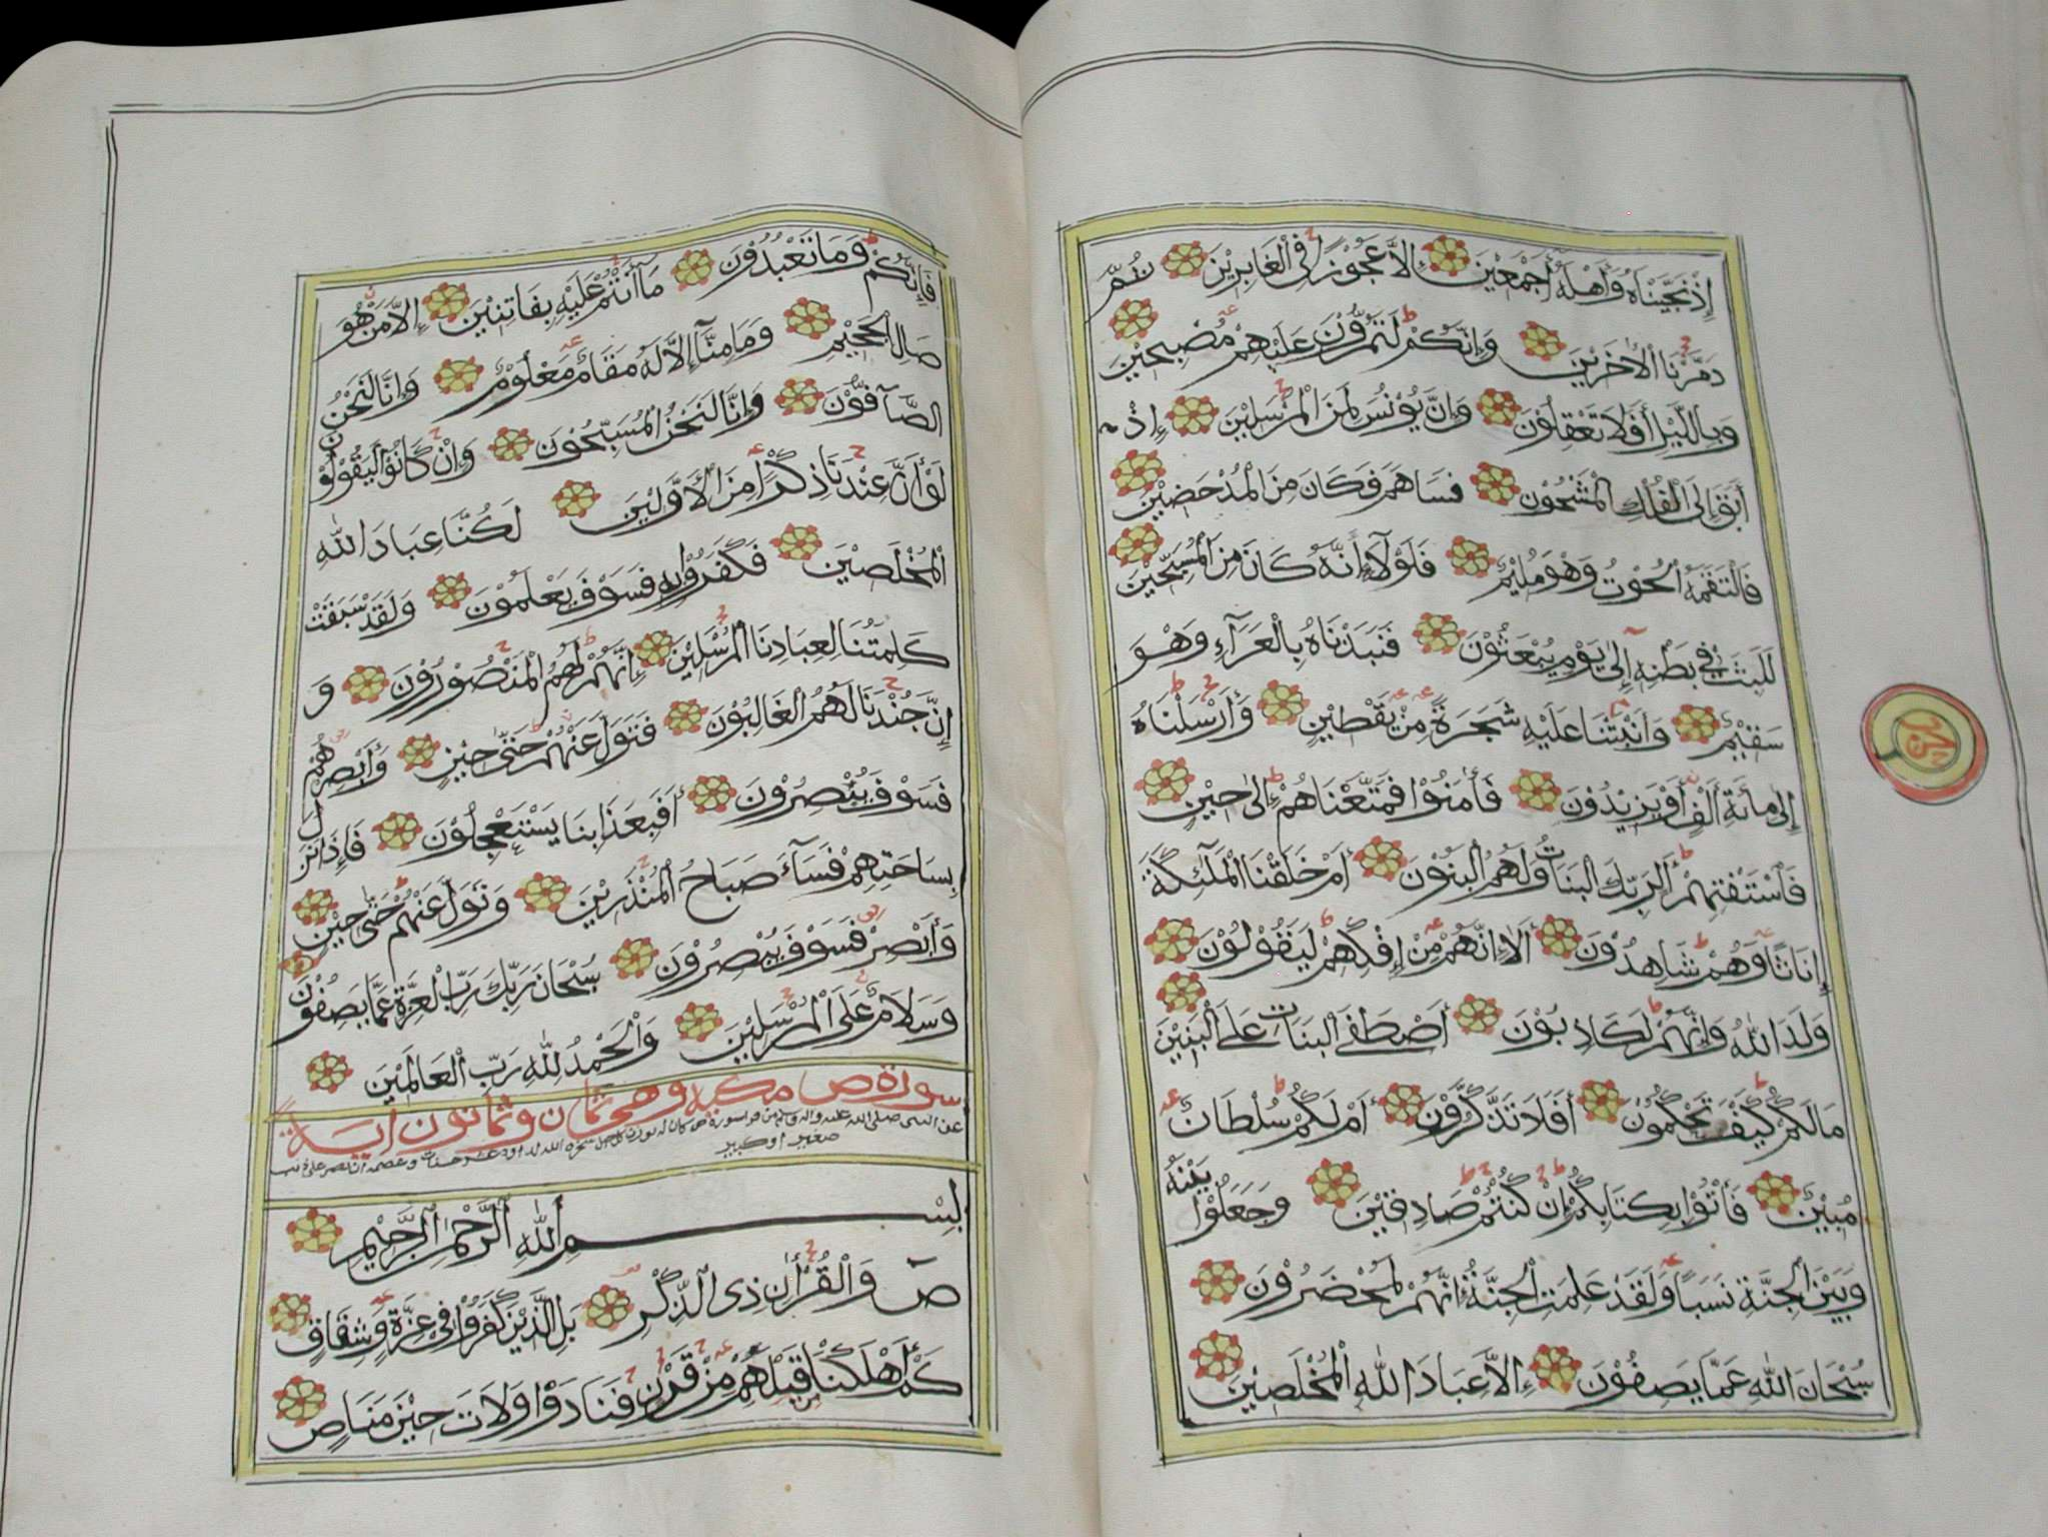 إِذْ نَجَّيْنَاهُ وَأَهْلَهُ أَجْمَعِيْنَ إِلاَّ عَجُوْزًا فِى الْغَابِرِيْنَ ثُمَّ
دَمَّرْنَا الْأَخَرِيْنَ وَإِنَّكُمْ لَتَمُرُّوْنَ عَلَيْهِمْ مُصْبِحِيْنَ
وَبِالَّيْلِ أَفَلَا تَعْقِلُوْنَ وَإِنَّ يُوْنُسَ لَمِنَ الْمُرْسَلِيْنَ إِذْ
أَبَقَ إِلَى الْفُلْكِ الْمَشْحُوْنِ فَسَاهَمَ فَكَانَ مِنَ الْمُدْحَضِيْنَ
فَالْتَقَمَهُ الْحُوْتُ وَهُوَ مُلِيْمٌ فَلَوْلَا أَنَّهُ كَانَ مِنَ الْمُسَبِّحِيْنَ
لَلَبِثَ فِي بَطْنِهِ إِلَى يَوْمِ يُبْعَثُوْنَ فَنَبَذْنَاهُ بِالْعَرَآءِ وَهُوَ
سَقِيْمٌ وَأَنْبَتْنَا عَلَيْهِ شَجَرَةً مِنْ يَقْطِيْنٍ وَأَرْسَلْنَاهُ
إِلَى مِائَةِ أَلْفٍ أَوْ يَزِيْدُوْنَ فَأَمَنُوْا فَمَتَّعْنَاهُمْ إِلَى حِيْنٍ
فَاسْتَفْتِهِمْ أَلِرَبِّكَ الْبَنَاتُ وَلَهُمُ الْبَنُوْنَ أَمْ خَلَقْنَا الْمَلَئِكَةَ
إِنَاثًا وَهُمْ شَاهِدُوْنَ أَلَا إِنَّهُمْ مِنْ إِفْكِهِمْ لَيَقُوْلُوْنَ
وَلَدَ اللهُ وَإِنَّهُمْ لَكَاذِبُوْنَ أَصْطَفَى الْبَنَاتِ عَلَى الْبَنِيْنَ
مَالَكُمْ كَيْفَ تَحْكُمُوْنَ أَفَلَا تَذَكَّرُوْنَ أَمْ لَكُمْ سُلْطَانٌ
مُبِيْنٌ فَأْتُوْا بِكِتَابِكُمْ إِنْ كُنْتُمْ صَادِقِيْنَ وَجَعَلُوْا بَيْنَهُ
وَبَيْنَ الْجِنَّةِ نَسَبًا وَلَقَدْ عَلِمَتِ الْجِنَّةُ إِنَّهُمْ لَمُحْضَرُوْنَ
سُبْحَانَ اللهِ عَمَّا يَصِفُوْنَ إِلاَّ عِبَادَ اللهِ الْمُخْلَصِيْنَ
فَإِنَّكُمْ وَمَا تَعْبُدُوْنَ مَا أَنْتُمْ عَلَيْهِ بِفَاتِنِيْنَ إِلاَّ مَنْ هُوَ
صَالِ الْجَحِيْمِ وَمَا مِنَّا إِلاَّ لَهُ مَقَامٌ مَعْلُوْمٌ وَإِنَّا لَنَحْنُ
الصَّآفُّوْنَ وَإِنَّا لَنَحْنُ الْمُسَبِّحُوْنَ وَإِنْ كَانُوْا لَيَقُوْلُوْنَ
لَوْ أَنَّ عِنْدَنَا ذِكْرًا مِنَ الْأَوَّلِيْنَ لَكُنَّا عِبَادَ اللهِ
الْمُخْلَصِيْنَ فَكَفَرُوْا بِهِ فَسَوْفَ يَعْلَمُوْنَ وَلَقَدْ سَبَقَتْ
كَلِمَتُنَا لِعِبَادِنَا الْمُرْسَلِيْنَ إِنَّهُمْ لَهُمُ الْمَنْصُوْرُوْنَ وَ
إِنَّ جُنْدَنَا لَهُمُ الْغَالِبُوْنَ فَتَوَلَّ عَنْهُمْ حَتَّى حِيْنٍ وَأَبْصِرْهُمْ
فَسَوْفَ يُبْصِرُوْنَ أَفَبِعَذَابِنَا يَسْتَعْجِلُوْنَ فَإِذَا نَزَلَ
بِسَاحَتِهِمْ فَسَآءَ صَبَاحُ الْمُنْذَرِيْنَ وَتَوَلَّ عَنْهُمْ حَتَّى حِيْنٍ
وَأَبْصِرْ فَسَوْفَ يُبْصِرُوْنَ سُبْحَانَ رَبِّكَ رَبِّ الْعِزَّةِ عَمَّا يَصِفُوْنَ
وَسَلَامٌ عَلَى الْمُرْسَلِيْنَ وَالْحَمْدُ لِلّهِ رَبِّ الْعَالَمِيْنَ
سورة ص مكية وهي ثمان وثمانون اية
عن النبي صلى الله عليه واله وسلم من قرا سورة ص كان له بوزن كل جبل سخره الله لداود عشر حسنات وعصمه ان يصر على ذنب
صغير او كبير
بِسْمِ اللهِ الرَّحْمنِ الرَّحِيْمِ
صَ وَالْقُرْأنِ ذِى الذِّكْرِ بَلِ الَّذِيْنَ كَفَرُوْا فِى عِزَّةٍ وَشِقَاقٍ
كَمْ أَهْلَكْنَا قَبْلَهُمْ مِنْ قَرْنٍ فَنَادَوْا وَلَاتَ حِيْنَ مَنَاصٍ